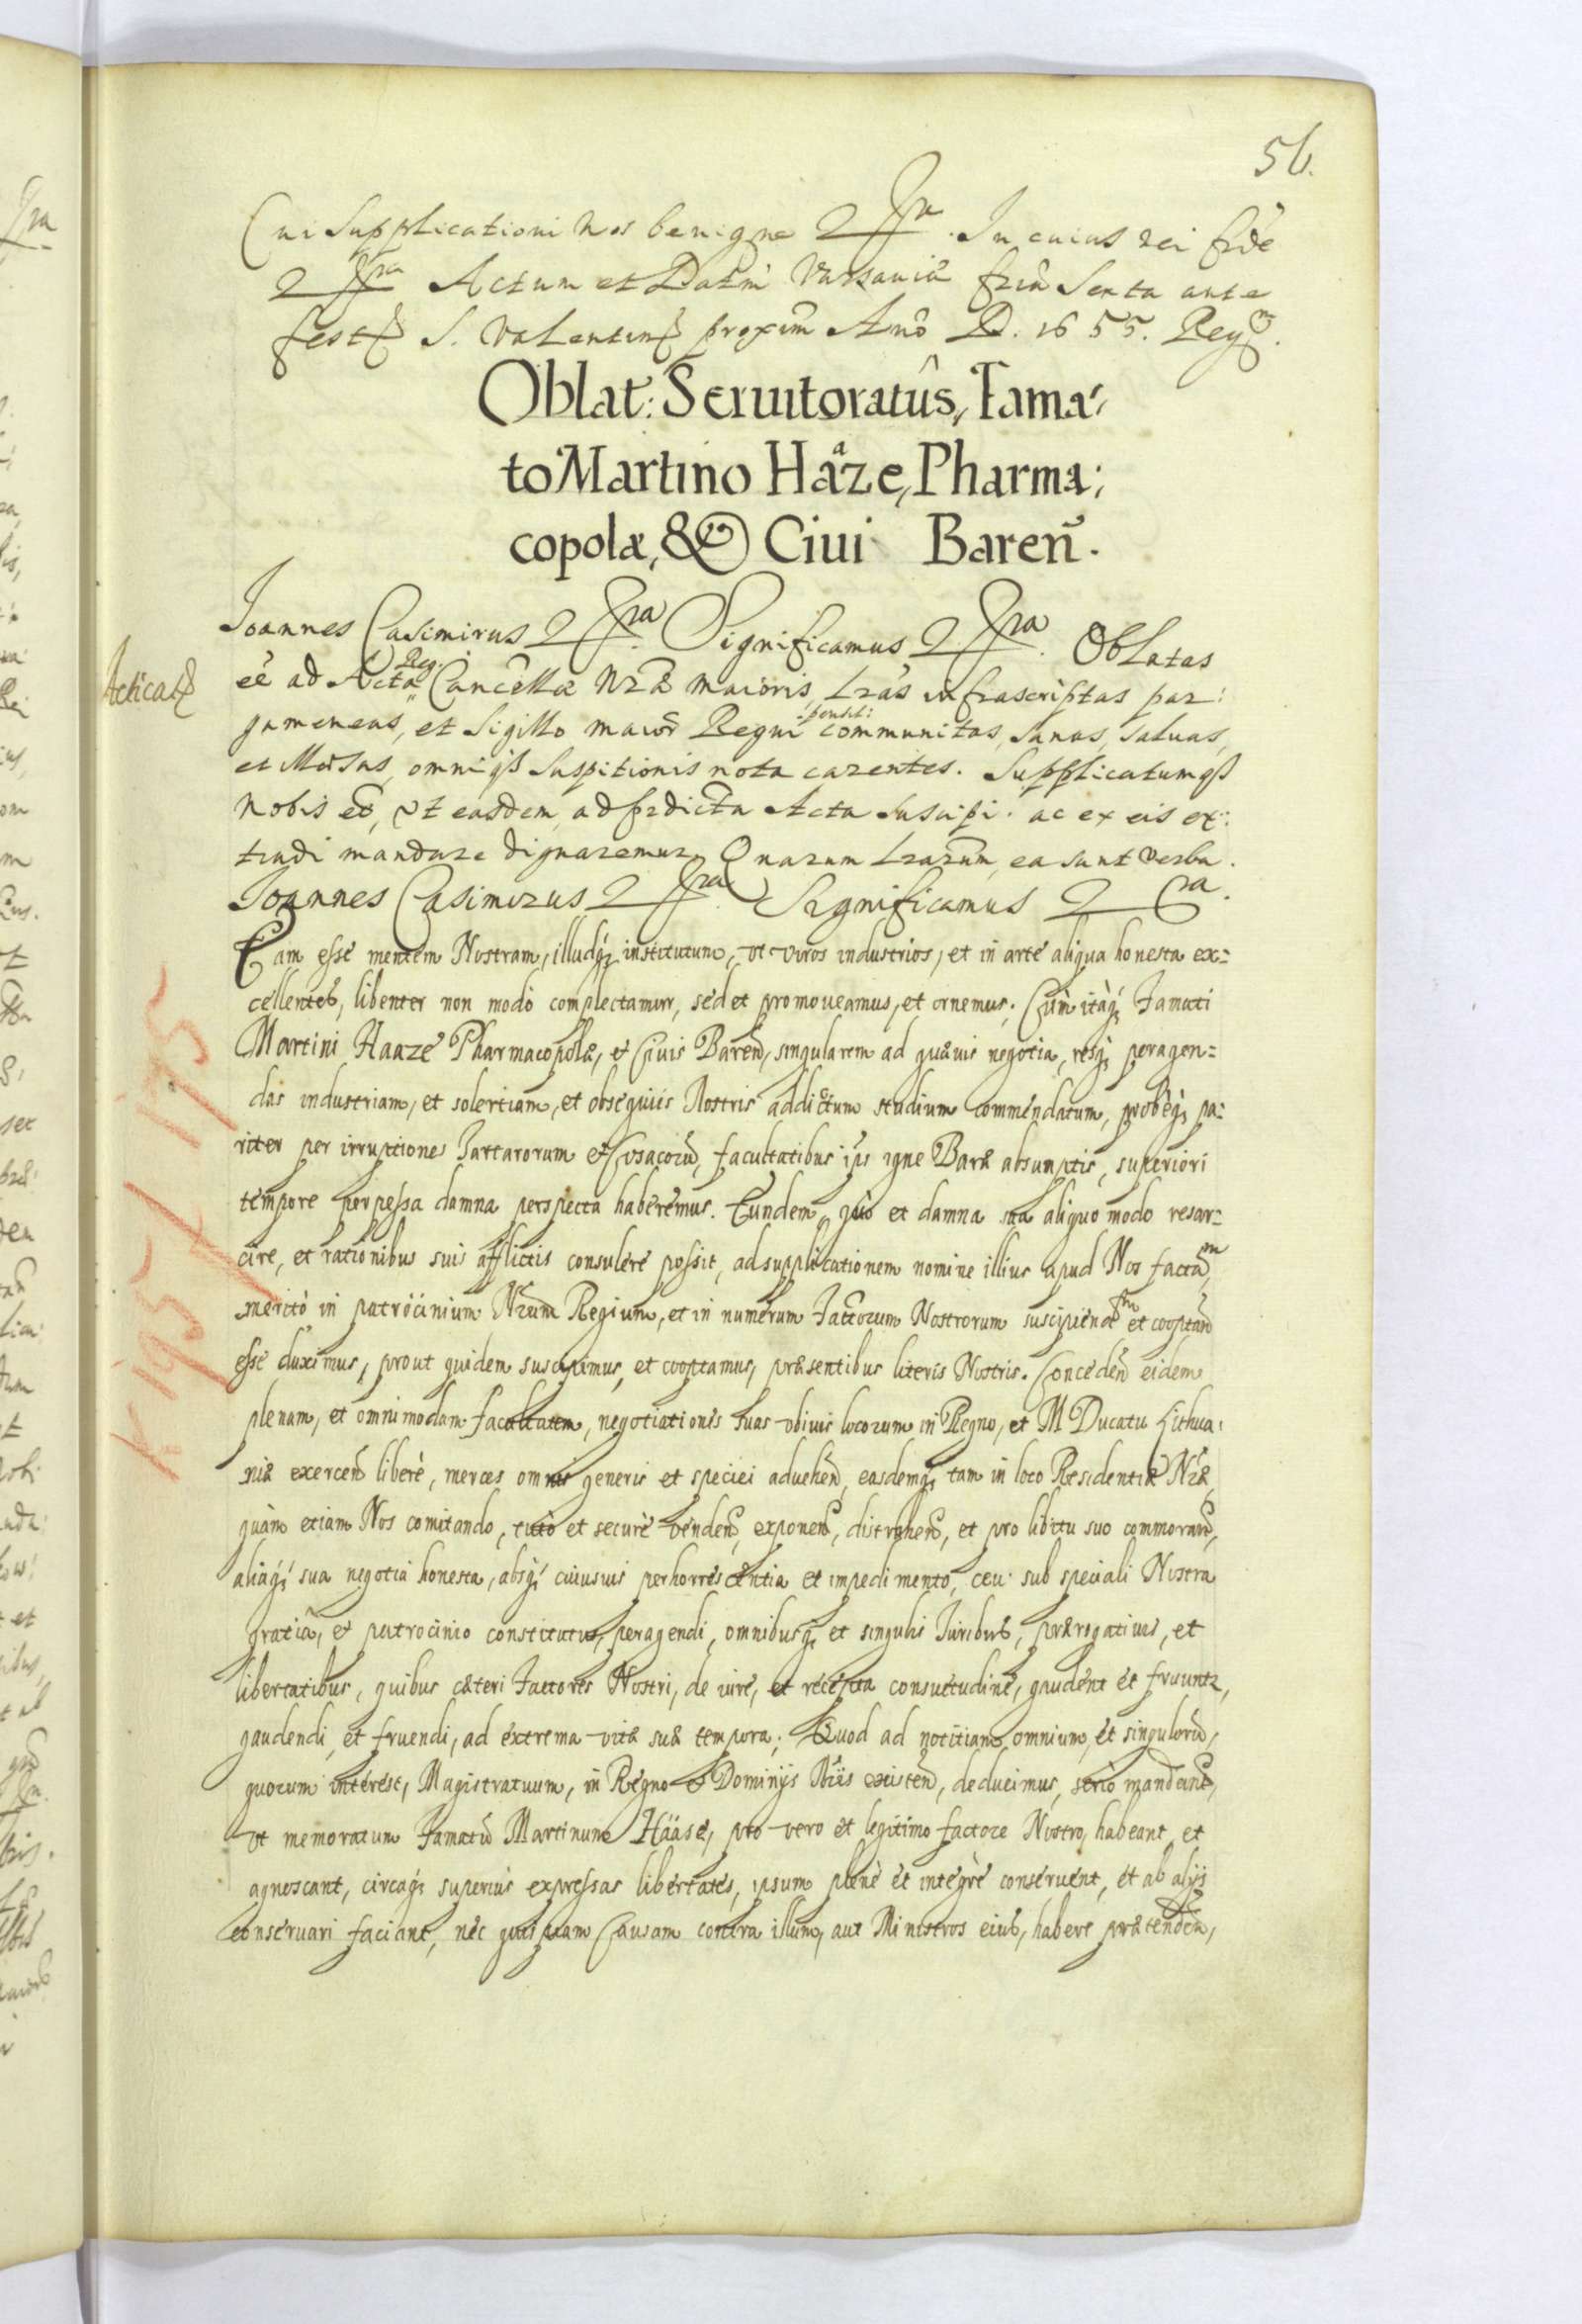 56.
Cui Supplicationi Nos benigne & Infra. In cuius rei fidē
& Infra Actum et Datm Varsaviæ feria Sexta ante
fest S. Valentini proxim Anō D. 1655. Reg
Oblat: Seruitoratûs, Fama⸗
to Martino Hâze, Pharma⸗
copolæ, & Ciui Bareñ.
Ioannes Casimirus & Infra. Significamus & Infra. Oblatas
Acticat
eē ad Acta Reg. Cancellæ Nræ Maioris, Lrās infrascriptas par⸗
gameneas, et Sigillo maiori Regni pensili communitas, Sanas, Saluas,
et Illæsas, omniq̃ Suspitionis nota carentes. Supplicatumq̃
Nobis eē, vt easdem, ad prædicta Acta Suscipi. ac ex eis ex⸗
tradi mandare dignaremur. Quarum Lrarum, ea sunt verba.
Ioannes Casimirus & Infra Significamus & Cra.
Eam esse mentem Nostram, illudq; institutum, vt viros industrios, et in arte aliqua honesta ex⸗
cellentes, libenter non modò complectamur, sed et promoueamus, et ornemus. Cùm itaq; Famati
Martini Haaze Pharmacopolæ, et Ciuis Bareñ, singularem ad quævis negotia, resq; peragen⸗
das industriam, et solertiam, et obsequiis Nostris addictum studium commendatum, probéq; pa⸗
riter per irruptiones Tartarorum et Cosacorū, facultatibus ipis igne Baræ absumptis, superiori
tempore perpessa damna perspecta haberemus. Eundem, quò et damna sua aliquo modo resar⸗
cire, et rationibus suis afflictis consulere possit, ad supplicationem nomine illius apud Nos factam,
meritò in patrocinium Nrum Regium, et in numerum Factorum Nostrorum suscipiendm et cooptand
esse duximus, prout quidem suscipimus, et cooptamus, præsentibus literis Nostris. Conceden̄ eidem
plenam, et omnimodam facultatem, negotiationes suas vbiuis locorum in Regno, et M Ducatu Lithua⸗
niæ exercen̄ liberè, merces omnis generis et speciei aduehen̄, easdemq; tam in loco Residentiæ Nræ,
quàm etiam Nos comitando, tutò et securè venden̄, exponen̄, distrahen̄, et pro libitu suo commoran̄,
aliaq; sua negotia honesta, absq; cuiusuis perhorrescentia et impedimento, ceu sub speciali Nostra
gratiā, et patrocinio constitutus, peragendi, omnibusq; et singulis Iuribus, prærogatiuis, et
libertatibus, quibus cæteri Factores Nostri, de iure, et recepta consuetudine, gaudent et fruuntr,
gaudendi, et fruendi, ad extrema vitæ suæ tempora; Quod ad notitiam omnium, et singulorū,
quorum interest, Magistratuum, in Regno et Dominijs Nris existen̄, deducimus, seriò mandan̄,
vt memoratum Famatū Martinum Hääse, pro vero et legitimo factore Nostro, habeant et
agnoscant, circaq; superiùs expressas libertates, ipsum plenè et integrè conseruent, et ab alijs
conseruari faciant, nec quispiam Causam contra illum, aut Ministros eius, habere prætenden̄,
k 195 / 195